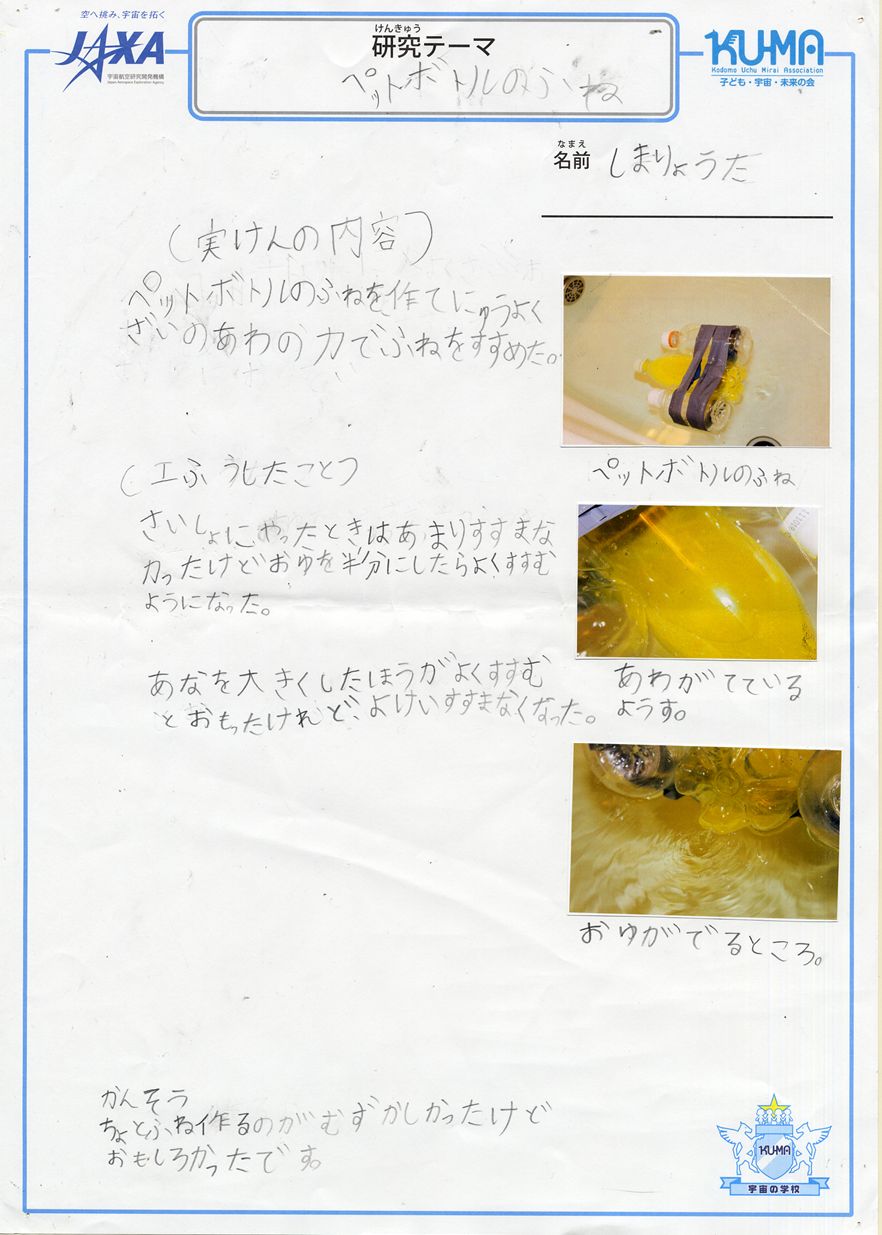 空へ挑み、宇宙を拓く
JAXA
宇宙航空研究開発機構
Japan Aerospace Exploration Agency
けんきゅう
研究テーマ
ペットボトルのふね
KU-MA
Kodomo Uchu Mirai Association
子ども・宇宙・未来の会
なまえ
名前 しまりょうた
(実けんの内容)
ペットボトルのふねを作てにゅうよく
ざいのあわの力でふねをすすめた。
ペットボトルのふね
(工ふうしたこと)
さいしょにやったときはあまりすすまな
かったけどおゆを半分にしたらよくすすむ
ようになった。
あわがでている
ようす。
あなを大きくしたほうがよくすすむ
とおもったけれど、よけいすすまなくなった。
おゆがでるところ。
かんそう
ちょとふね作るのがむずかしかったけど
おもしろかったです。
KU-MA
宇宙の学校